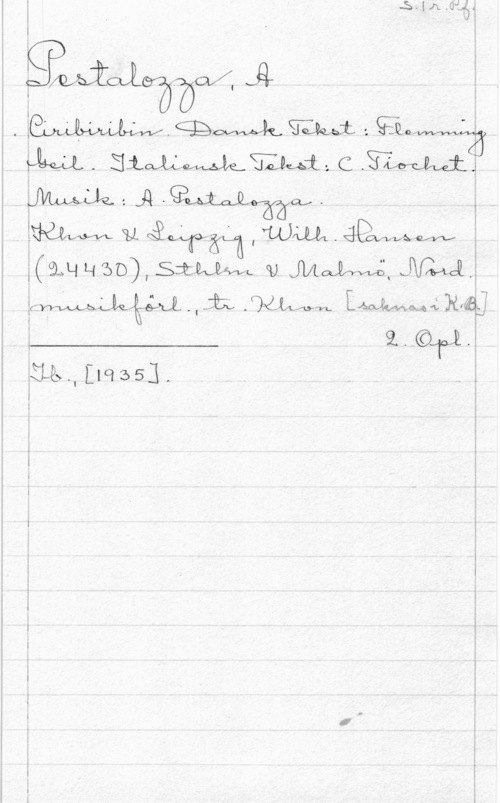 S. 1 r. Pf.
Pestalozza, A
Ciribiribin. Dansk Tekst : Flemming
Geil. Italiensk Tekst : C. Tiochet.
Musik : A. Pestalozza.
Khvn & Leipzig, Wilh. Hansen
(24430), Sthlm & Malmö, Nord.
musikförl., tr. Khvn [saknas i K.B.]
2. Opl.
Ib., [1935].